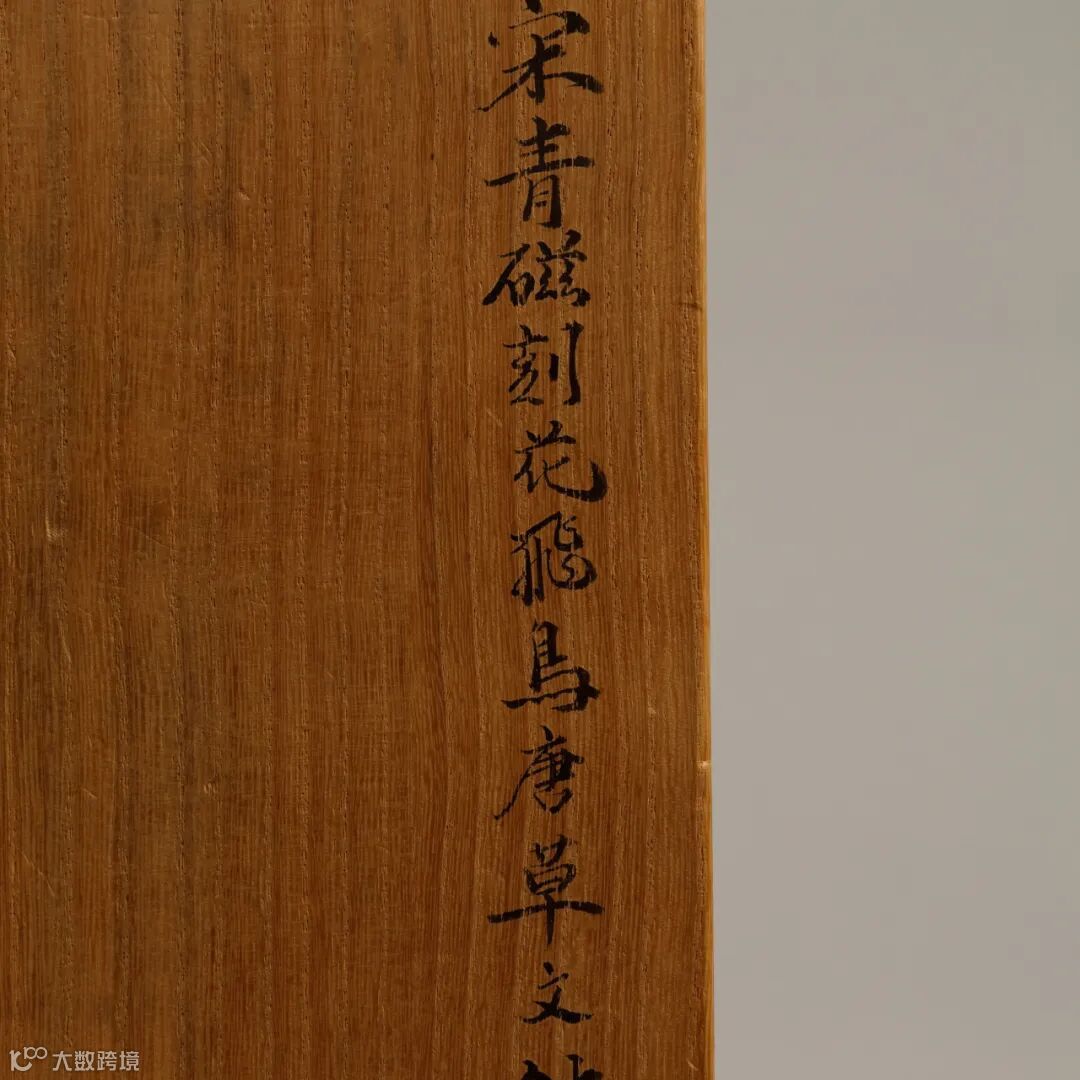 宋青磁刻花飛鳥唐草文
大数跨境